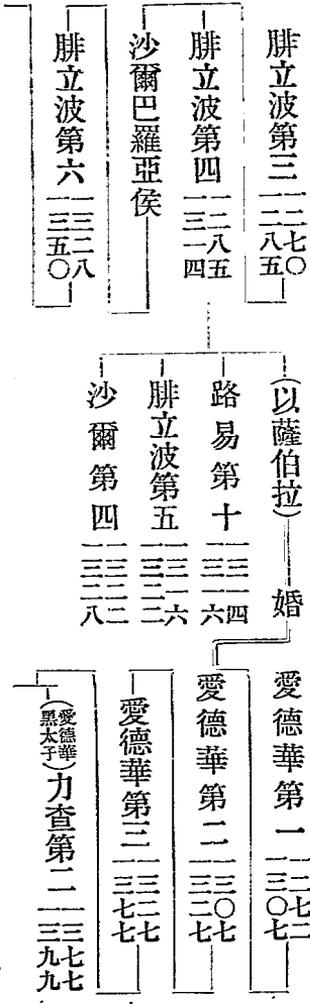 腓立波第三一二七〇一二八五
腓立波第四一二八五一三一四
沙爾巴羅亞侯
腓立波第六一三二八一三五〇
(以薩伯拉)婚
路易第十一三一四一三一六
腓立波第五一三一六一三二二
沙爾第四一三二二一三二八
愛德華第一一二七二一三〇七
愛德華第二一三〇七一三二七
愛德華第三一三二七一三七七
(愛德華黑太子)力查第二一三七七一三九九